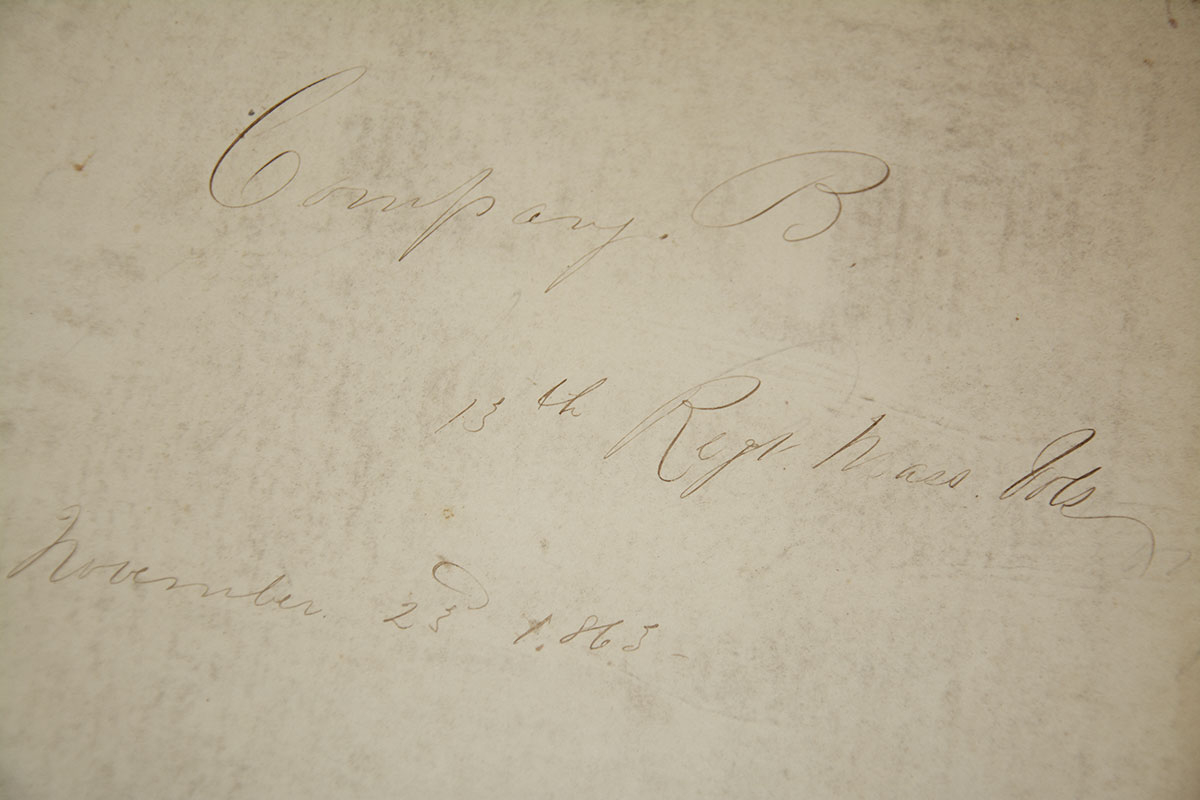 Company. B
13th Regt. Mass. Vols
November. 23d 1863